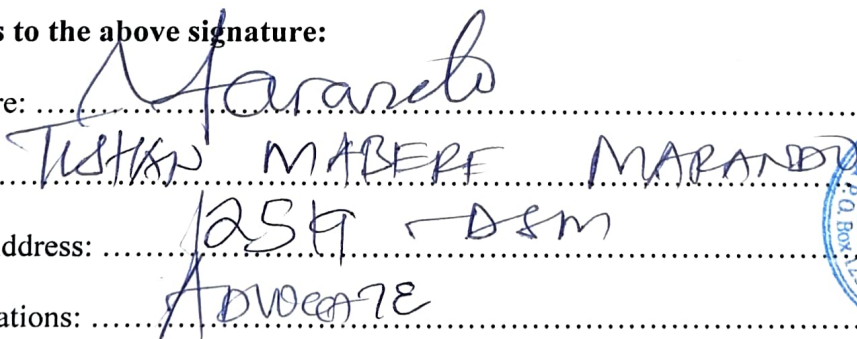 s to the above signature:
re: Marando
TISHAN MABERE MARANDU
ddress: 1254 - DSM
ations: ADVOCATE
P.O. Box